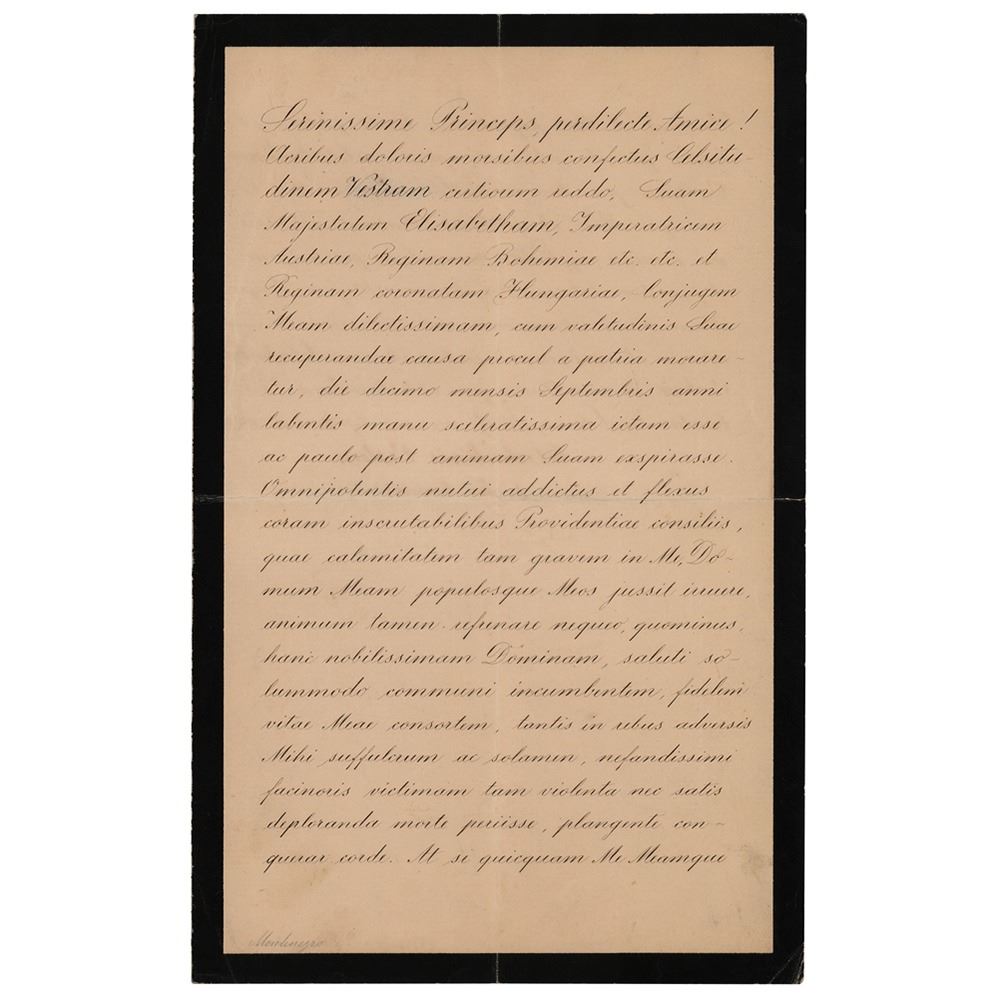 Serenissime Princeps, perdilecte Amice!
Acribus doloris morsibus confectus Celsitu-
dinem Vestram certiorem reddo, Suam
Majestatem Elisabetham, Imperatricem
Austriae, Reginam Bohemiae etc. etc. et
Reginam coronatam Hungariae, Conjugem
Meam dilectissimam, cum valetudinis Suae
recuperandae causa procul a patria morare-
tur, die decimo mensis Septembris anni
labentis manu sceleratissima ictam esse
ac paulo post animam Suam exspirasse.
Omnipotentis nutui addictus et flexus
coram inscrutabilibus Providentiae consiliis,
quae calamitatem tam gravem in Me, Do-
mum Meam populosque Meos jussit irruere,
animum tamen refrenare nequeo, quominus,
hanc nobilissimam Dominam, saluti so-
lummodo communi incumbentem, fidelem
vitae Meae consortem, tantis in rebus adversis
Mihi suffulcrum ac solamen, nefandissimi
facinoris victimam tam violenta nec satis
deploranda morte periisse, plangente con-
querar corde. At si quicquam Me Meamque
Montenegro